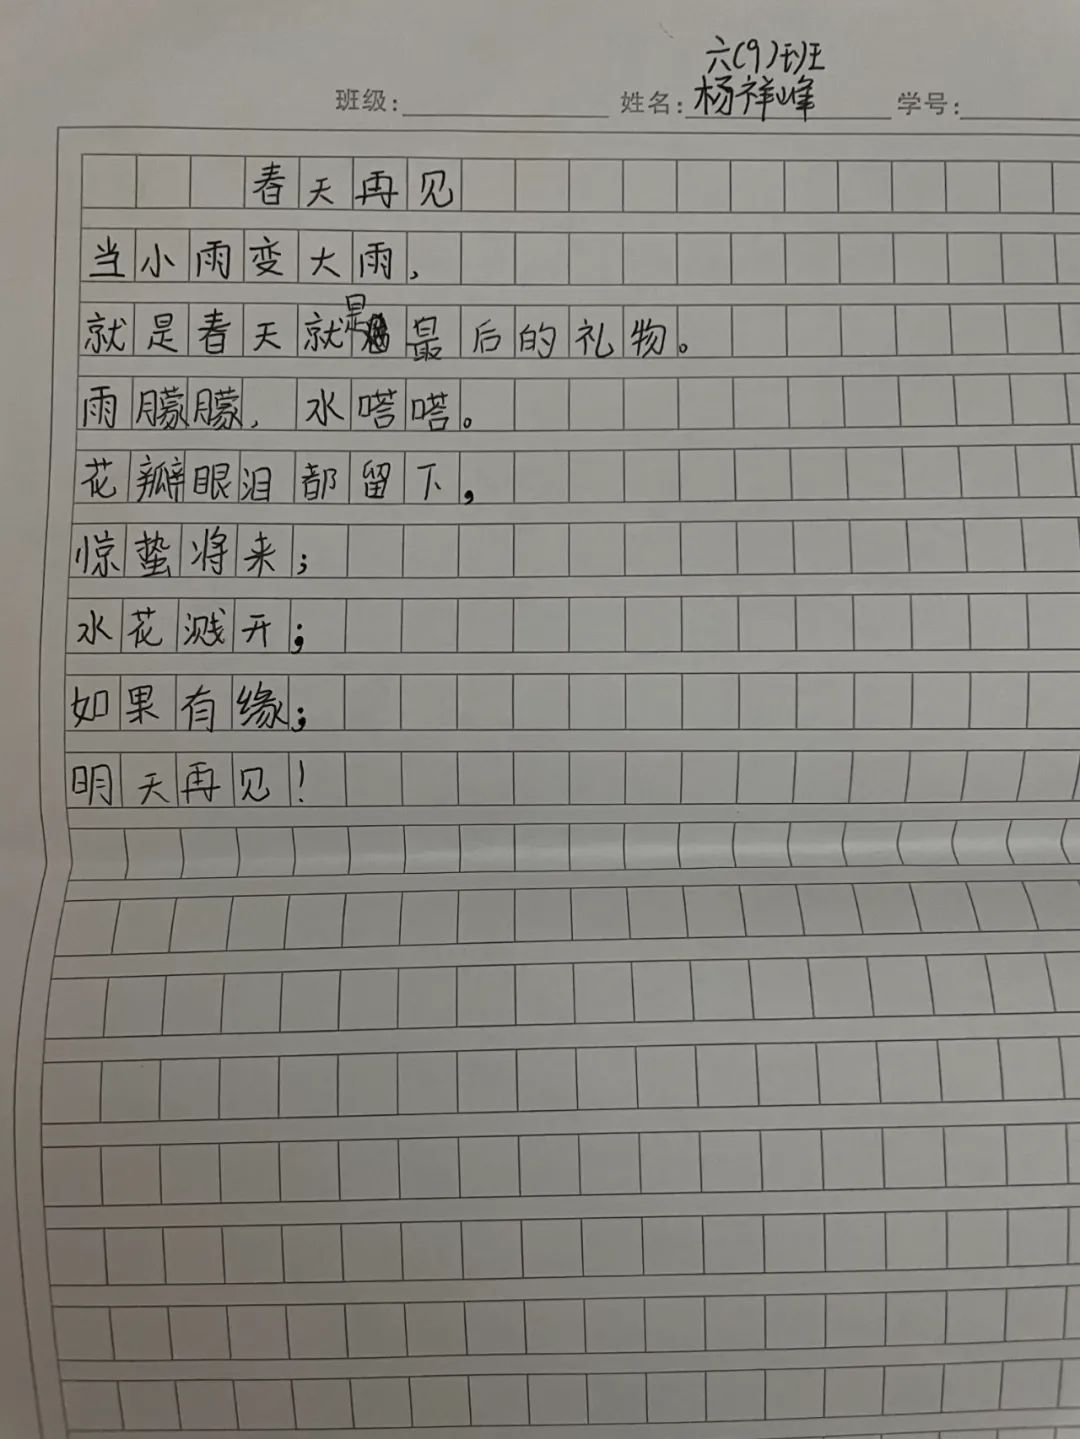 六(9)班
班级： 姓名：杨祥峰 学号：
春天再见
当小雨变大雨，
就是春天就是最后的礼物。
雨朦朦，水嗒嗒。
花瓣眼泪都留下，
惊蛰将来；
水花溅开；
如果有缘；
明天再见！